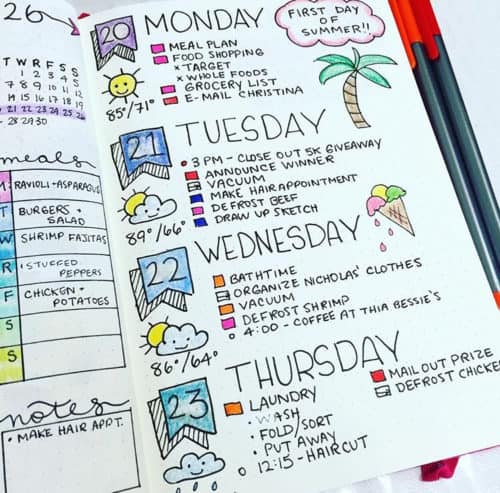 26
T W R F S S
1 2 3 4 5
7 8 9 10 11 12
14 15 16 17 18 19
21 22 23 24 25 26
28 29 30
meals
RAVIOLI + ASPARAGUS
T BURGERS + SALAD
W SHRIMP FAJITAS
R STUFFED PEPPERS
F CHICKEN + POTATOES
S
S
notes
• MAKE HAIR APPT.
20
MONDAY
FIRST DAY
OF
SUMMER!!
MEAL PLAN
FOOD SHOPPING
x TARGET
x WHOLE FOODS
GROCERY LIST
E-MAIL CHRISTINA
85°/71°
21
TUESDAY
3 PM - CLOSE OUT 5K GIVEAWAY
ANNOUNCE WINNER
VACUUM
MAKE HAIR APPOINTMENT
DEFROST BEEF
DRAW UP SKETCH
89°/66°
22
WEDNESDAY
BATHTIME
ORGANIZE NICHOLAS' CLOTHES
VACUUM
DEFROST SHRIMP
4:00 - COFFEE AT THIA BESSIE'S
86°/64°
23
THURSDAY
LAUNDRY
• WASH
• FOLD/SORT
• PUT AWAY
12:15 - HAIRCUT
MAIL OUT PRIZE
DEFROST CHICKE